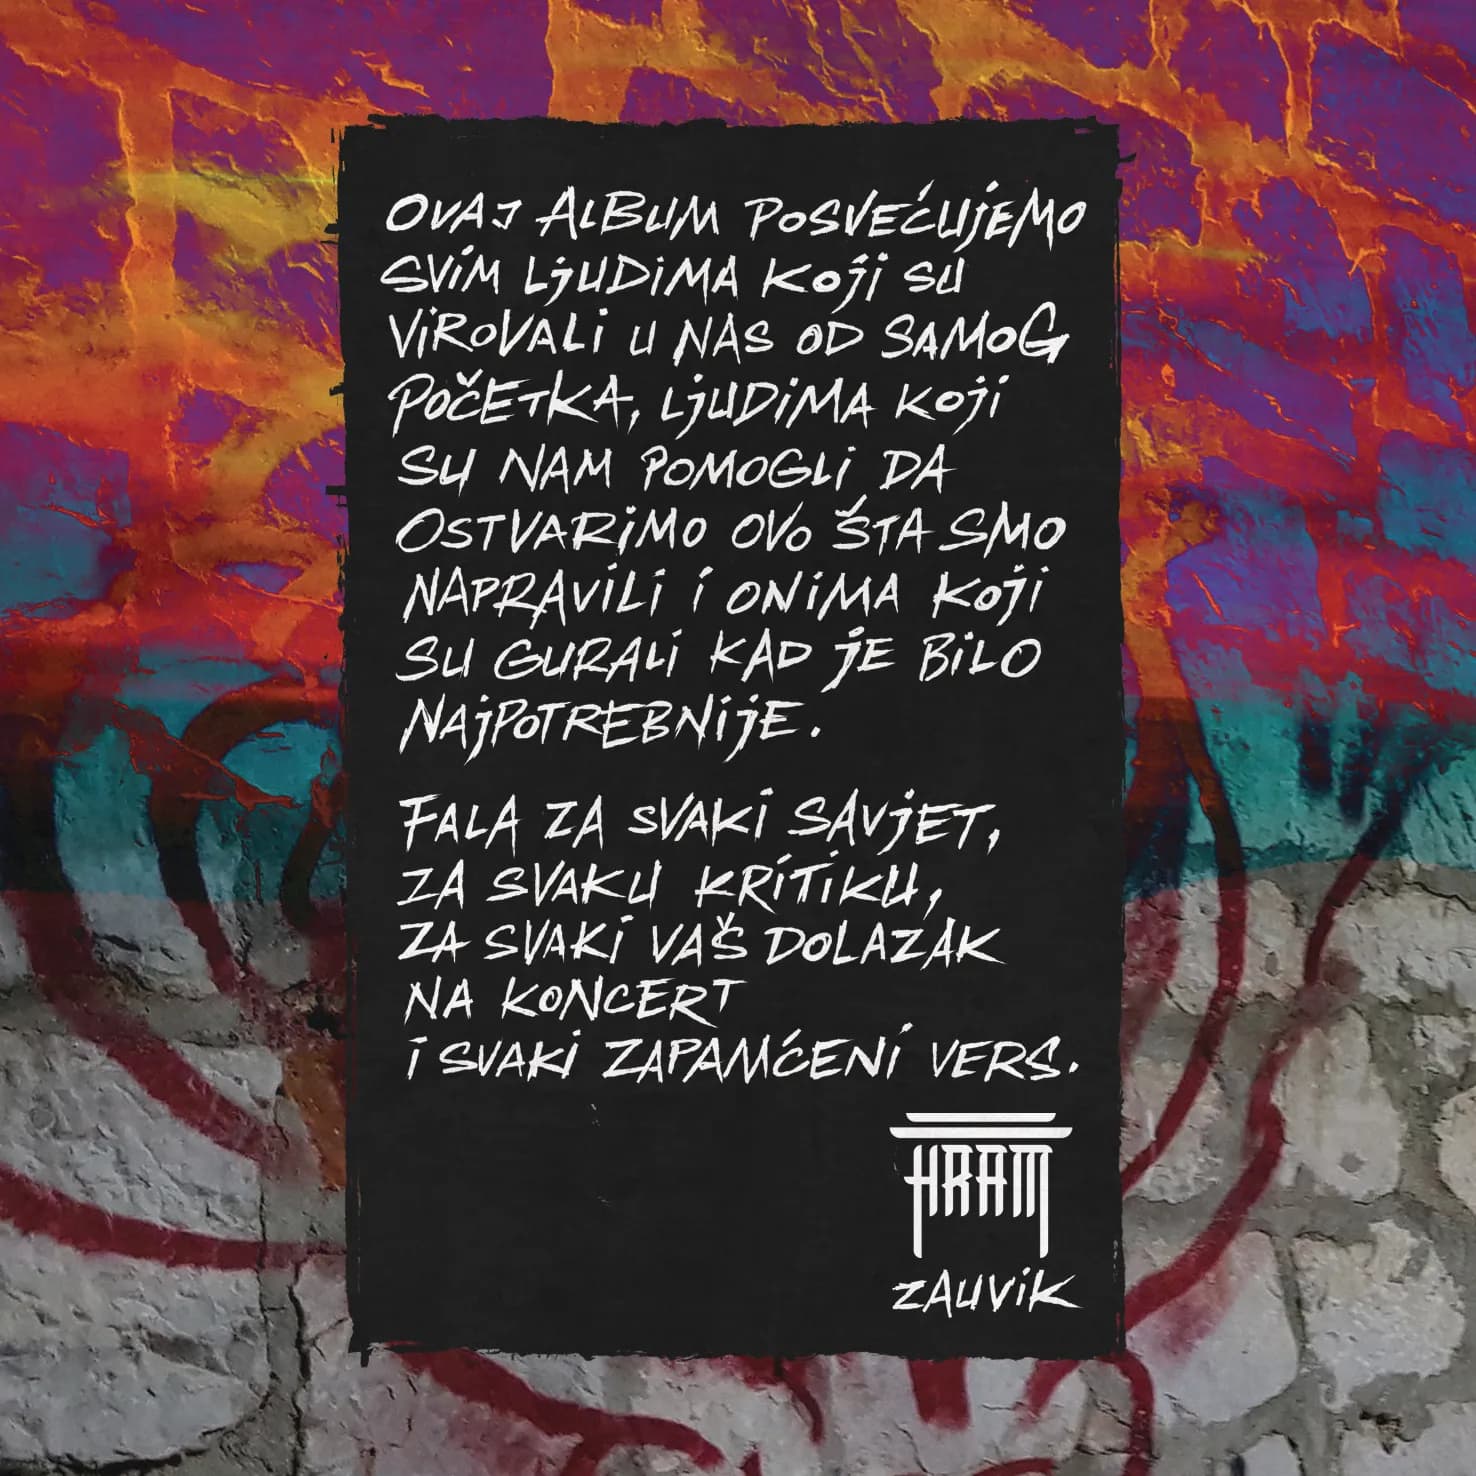 OVAJ ALBUM POSVEĆUJEMO
SVIM LJUDIMA KOJI SU
VIROVALI U NAS OD SAMOG
POČETKA, LJUDIMA KOJI
SU NAM POMOGLI DA
OSTVARIMO OVO ŠTA SMO
NAPRAVILI I ONIMA KOJI
SU GURALI KAD JE BILO
NAJPOTREBNIJE.
FALA ZA SVAKI SAVJET,
ZA SVAKU KRITIKU,
ZA SVAKI VAŠ DOLAZAK
NA KONCERT
I SVAKI ZAPAMĆENI VERS.
HRAM
ZAUVIK